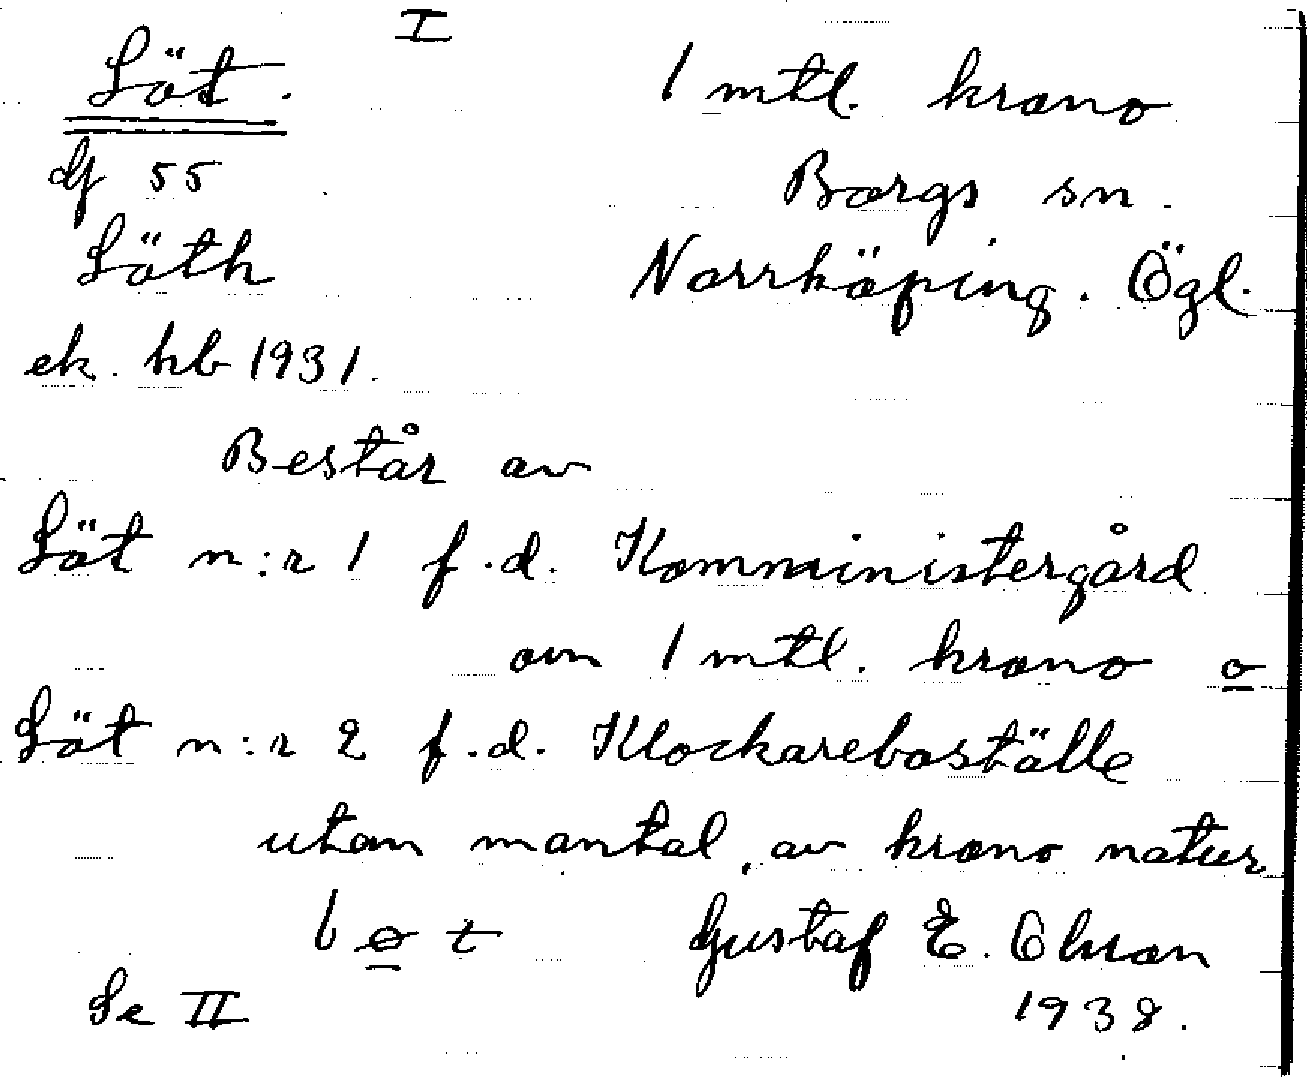 I
Löt.
1 mtl. krono
Borgs sn.
Gf 55
Löth
Norrköping. Ögl.
ek. kb 1931.
Består av
Löt n:r 1 f.d. Komministergård
om 1 mtl. krono o
Löt n:r 2 f.d. Klockareboställe
utom mantal, av krono natur
Gustaf E. Olsson
Se II
1938.